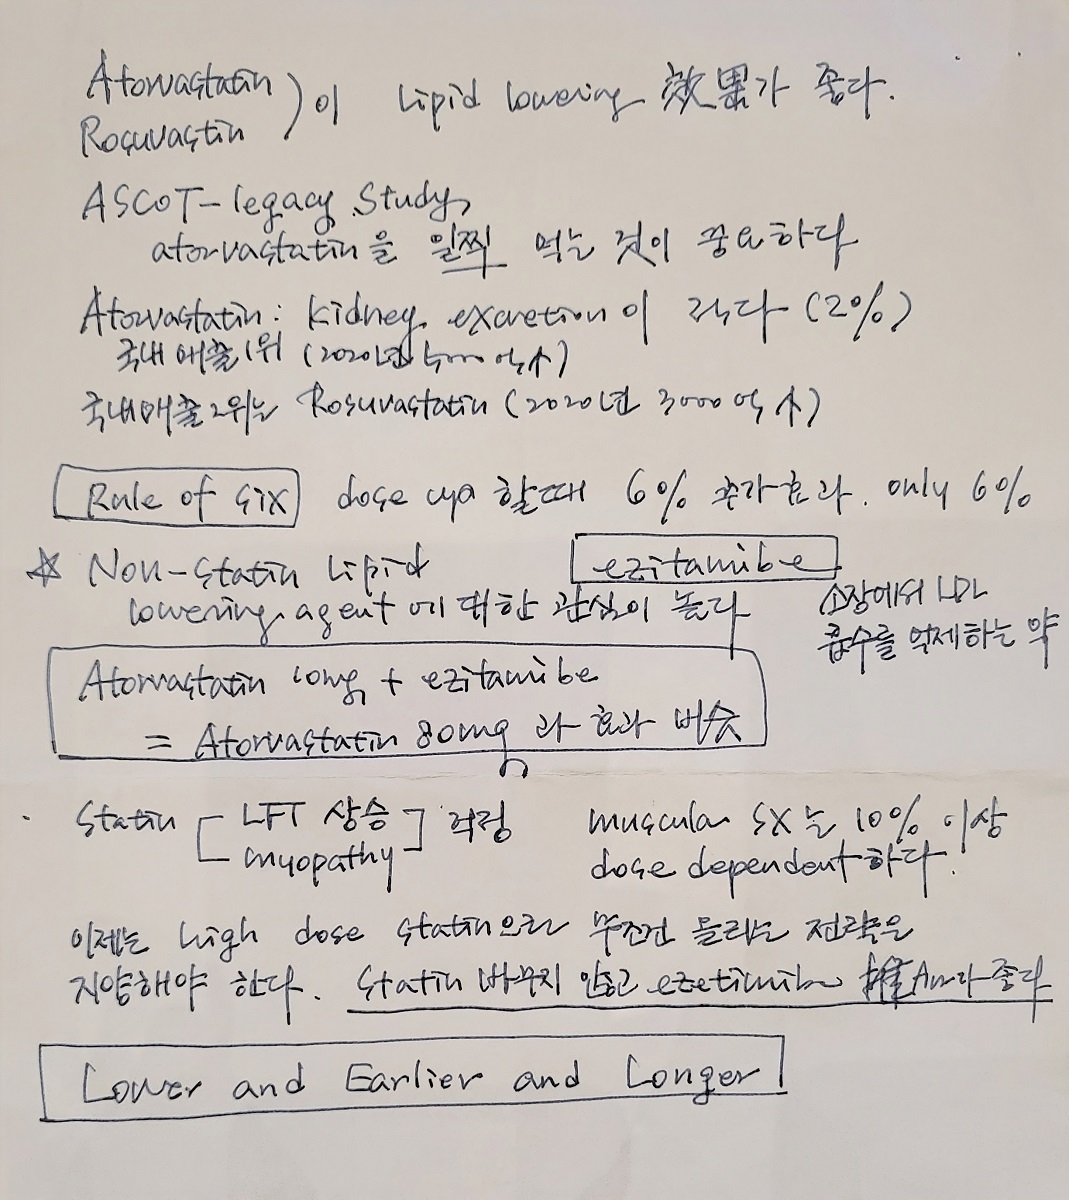 Atorvastatin
Rosuvastin ) 이 Lipid lowering 效果가 좋다.
ASCOT-legacy study,
atorvastatin을 일찍 먹는 것이 중요하다
Atorvastatin: kidney excretion이 작다 (2%)
국내 매출 1위 (2020년
국내매출 2위는 Rosuvastatin (2020년 3000억 ↑)
Rule of six dose up 할때 6% 추가효과. only 6%
☆ Non-statin Lipid ezitamibe
lowering agent에 대한 관심이 높다
소장에서
흡수를 억제하는 약
Atorvastatin 10mg + ezitamibe
= Atorvastatin 80mg 과 효과 비슷
Statin [ LFT 상승 ] 걱정
myopathy
muscular sx는 10% 이상
dose dependent하다.
이제는 high dose statin으로 무조건 올리는 전략은
지양해야 한다. statin 바꾸지 않고 ezetimibe 좋다
Lower and Earlier and Longer